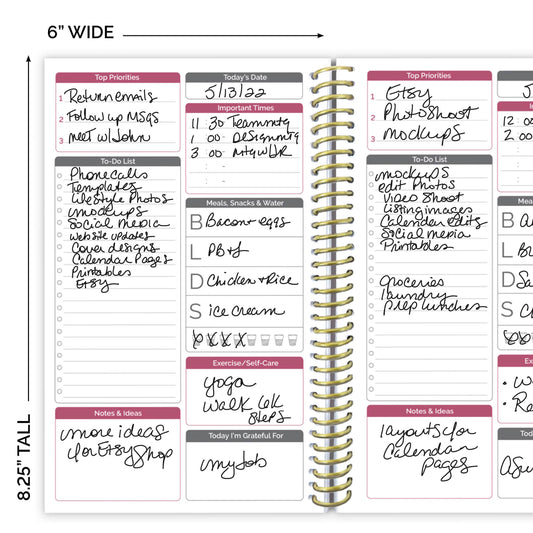 6” WIDE
8.25” TALL
Top Priorities
1 Return emails
2 Follow up MSGS
3 meet w/John
To-Do List
Phone calls
Templates
Lifestyle Photos
mockups
Social media
website updates
Cover designs
Calendar Pages
Printables
Etsy
Notes & Ideas
more ideas
for Etsy Shop
Today's Date
5/13/22
Important Times
11 : 30 Team mtg
1 : 00 Design mtg
3 : 00 Mtg w/JR
Meals, Snacks & Water
B Bacon + eggs
L PB+J
D Chicken + Rice
S ice cream
Exercise/Self-Care
yoga
walk 6k
steps
Today I'm Grateful For
my Job
Top Priorities
1 Etsy
2 Photo Shoot
3 mockups
To-Do List
mockups
edit Photos
Video Shoot
Listing images
Calendar Edits
Social media
Printables
groceries
laundry
prep lunches
Notes & Ideas
layouts for
Calendar
Pages
5
Im
12 00
2 00
Mea
B
L
D
S
Ex
Toda